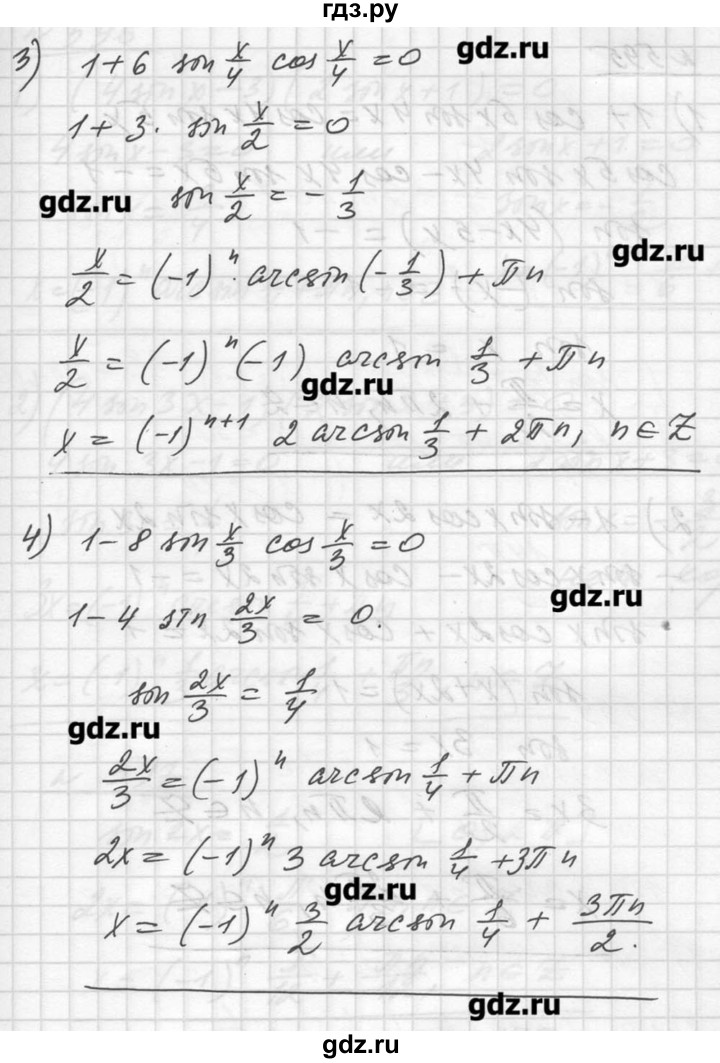 гдз.ру
3) 1+6 sin x/4 cos x/4 = 0
gdz.ru
1 + 3. sin x/2 = 0
gdz.ru sin x/2 = - 1/3
gdz.ru
x/2 = (-1)^n · arcsin(-1/3) + πn
x/2 = (-1)^n (-1) arcsin 1/3 + πn
gdz.ru
x = (-1)^{n+1} 2 arcsin 1/3 + 2πn, n∈Z
4) 1-8 sin x/3 cos x/3 = 0
gdz.ru
1-4 sin 2x/3 = 0.
sin 2x/3 = 1/4
gdz.ru
2x/3 = (-1)^n arcsin 1/4 + πn
2x = (-1)^n 3 arcsin 1/4 + 3πn
gdz.ru
x = (-1)^n 3/2 arcsin 1/4 + 3πn/2.
gdz.ru